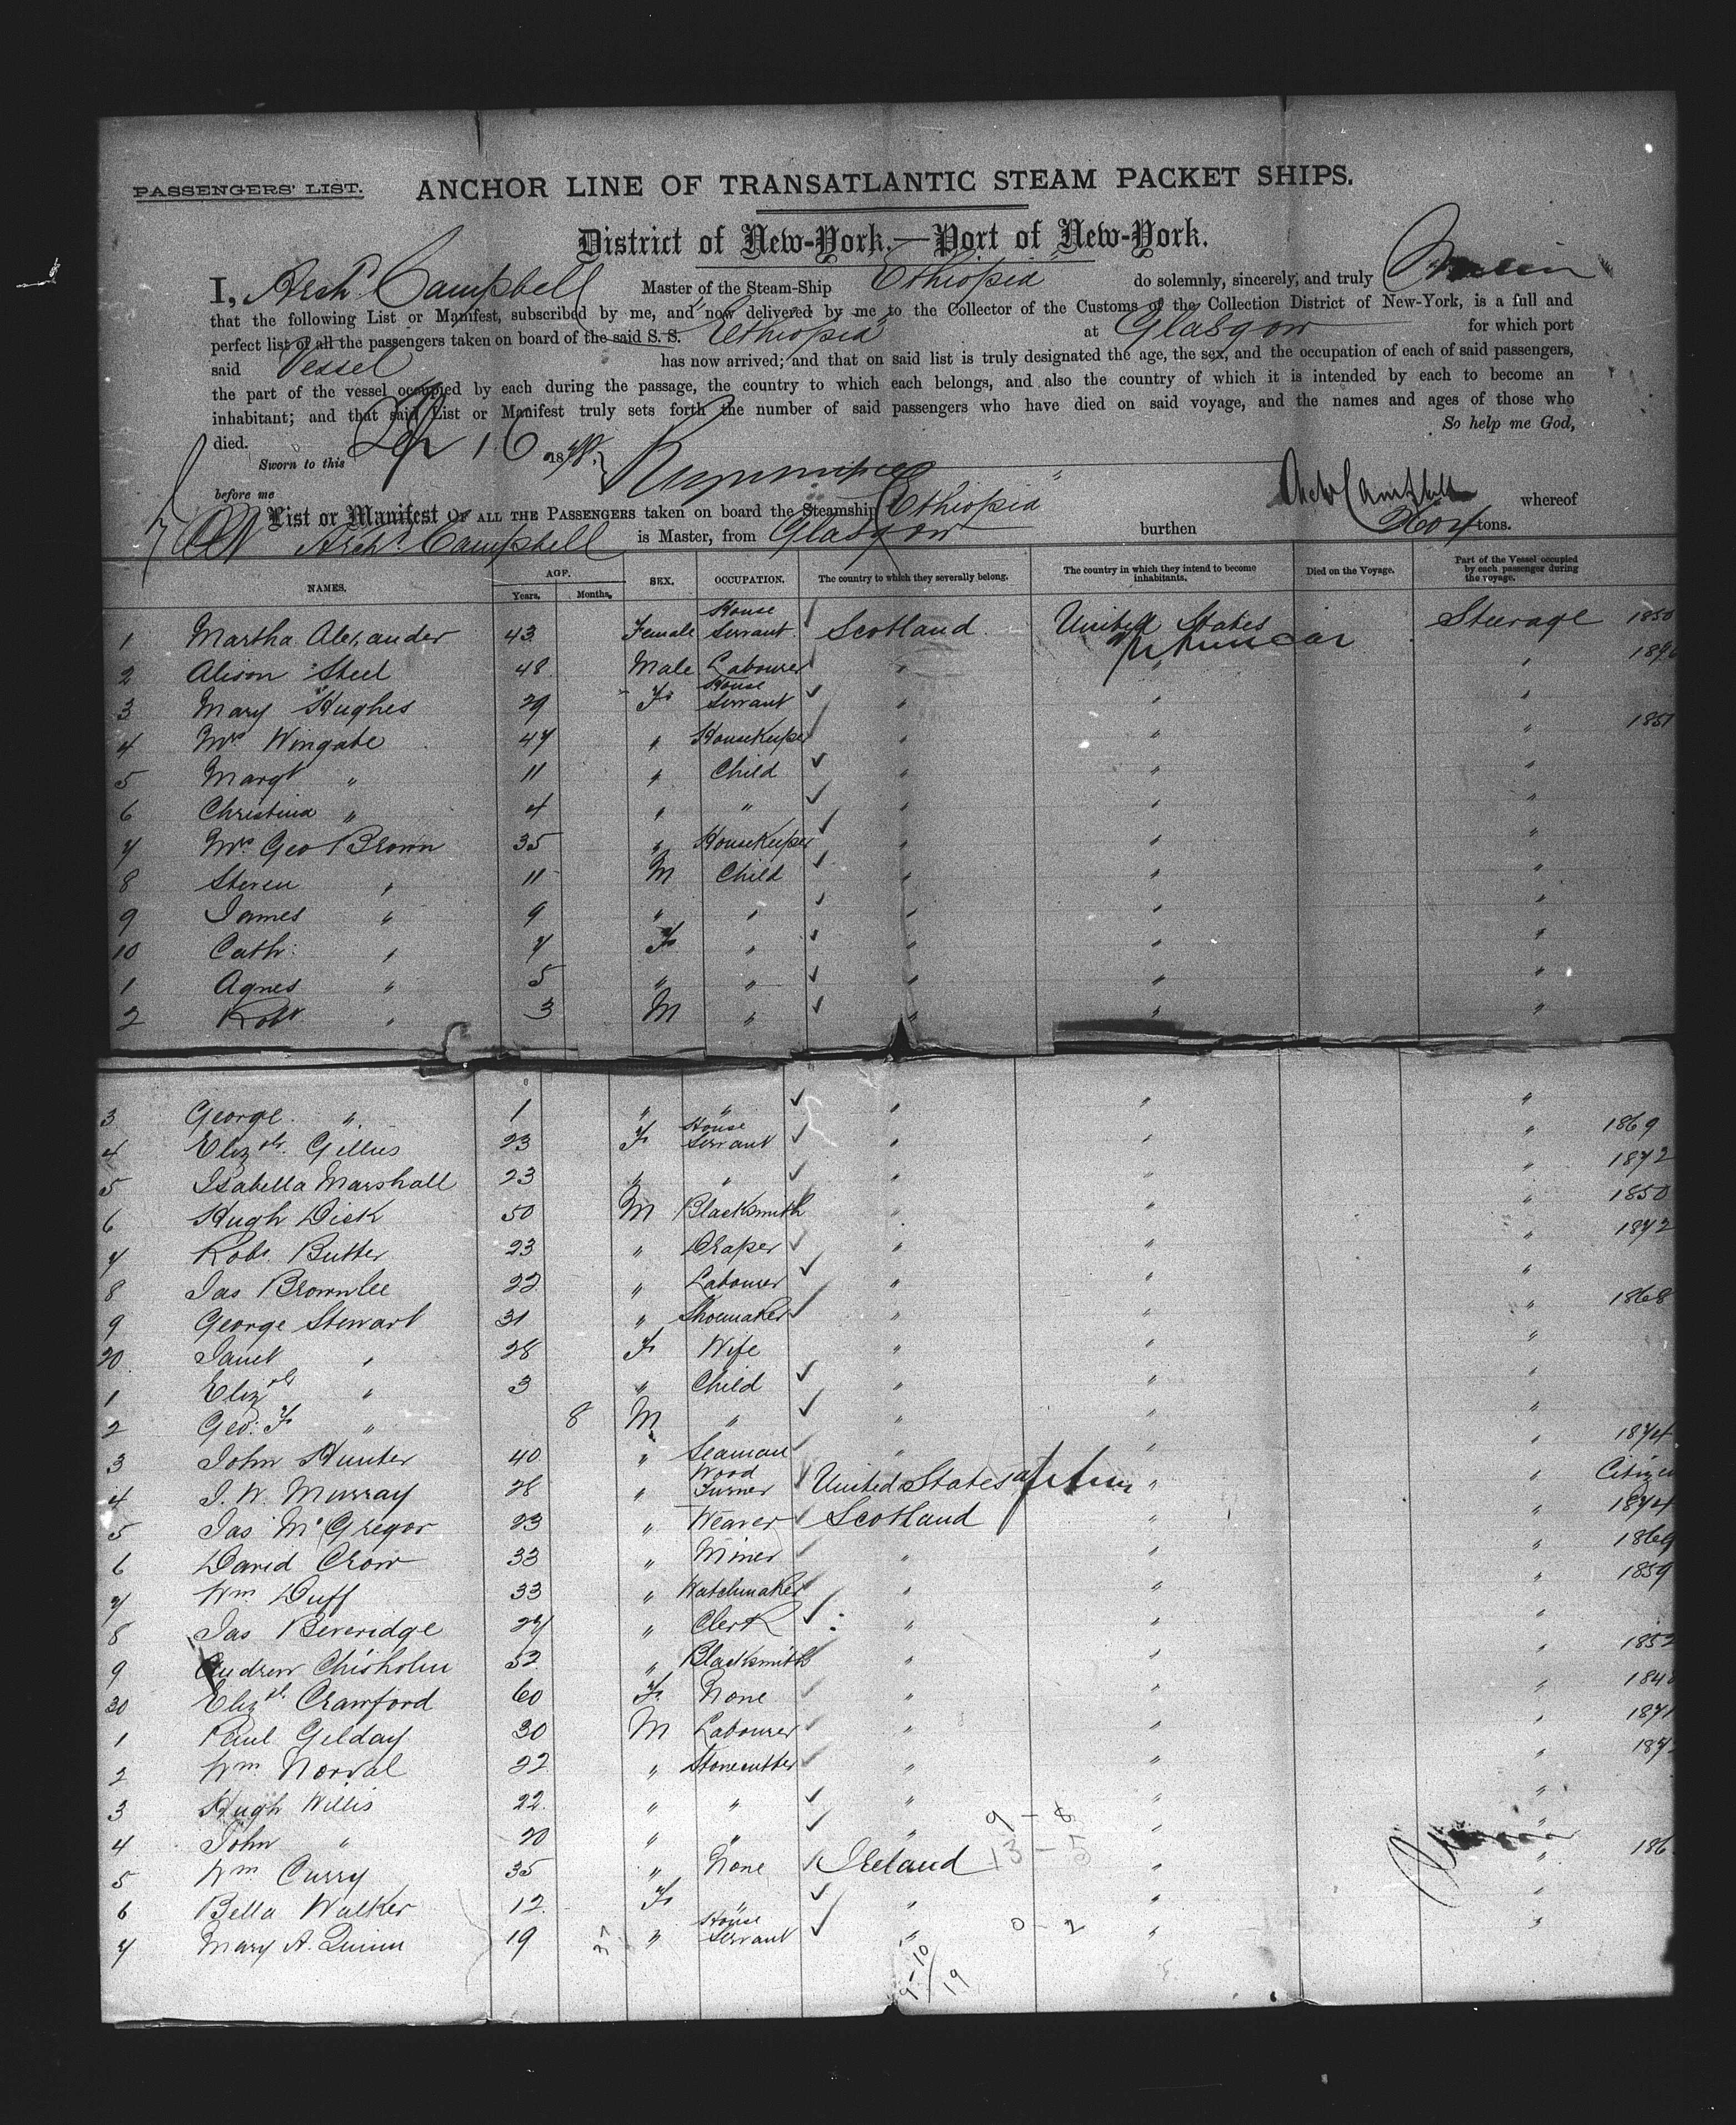 PASSENGERS' LIST. ANCHOR LINE OF TRANSATLANTIC STEAM PACKET SHIPS.
District of New-York.—Port of New-York.
I, Archd. Campbell Master of the Steam-Ship "Ethiopia" do solemnly, sincerely, and truly
that the following List or Manifest, subscribed by me, and now delivered by me to the Collector of the Customs of the Collection District of New-York, is a full and
perfect list of all the passengers taken on board of the said S. S. "Ethiopia" at Glasgow for which port
said Vessel has now arrived; and that on said list is truly designated the age, the sex, and the occupation of each of said passengers,
the part of the vessel occupied by each during the passage, the country to which each belongs, and also the country of which it is intended by each to become an
inhabitant; and that said List or Manifest truly sets forth the number of said passengers who have died on said voyage, and the names and ages of those who
died. So help me God,
Sworn to this 16 18
before me Arch Campbell
List or Manifest OF ALL THE PASSENGERS taken on board the Steamship "Ethiopia" whereof
Archd. Campbell is Master, from Glasgow burthen tons.
NAMES. AGE. Years. Months. SEX. OCCUPATION. The country to which they severally belong. The country in which they intend to become inhabitants. Died on the Voyage. Part of the Vessel occupied by each passenger during the voyage.
1 Martha Alexander 43 Female House Servant Scotland United States Steerage 1850
2 Alison Steel 48 Male Labourer " " "
3 Mary Hughes 29 F. House Servant " " "
4 Mrs Wingate 47 " Housekeeper " " " 1851
5 Margt " 11 " Child " " "
6 Christina " 4 " " " " "
7 Mrs Geo Brown 35 " Housekeeper " " "
8 Steven " 11 M Child " " "
9 James " 9 " " " " "
10 Cath: " 7 F. " " " "
1 Agnes " 5 " " " " "
2 Robt " 3 M " " " "
3 George " 1 " " " " "
4 Elizth. Gillies 23 F. House Servant " " " 1869
5 Isabella Marshall 23 " " " " " 1872
6 Hugh Dick 50 M Blacksmith " " " 1850
7 Robt. Butter 23 " Draper " " " 1872
8 Jas Brownlee 22 " Labourer " " "
9 George Stewart 31 " Shoemaker " " " 1868
20 Janet " 28 F. Wife " " "
1 Elizth " 3 " Child " " "
2 Geo: F. " 8 M " " " "
3 John Hunter 40 " Seaman " " " 1874
4 J. W. Murray 28 " Wood Turner United States " " Citizen
5 Jas McGregor 23 " Weaver Scotland " " 1874
6 David Crow 33 " Miner " " " 1869
7 Wm Duff 33 " Watchmaker " " " 1859
8 Jas Beveridge 27 " Clerk " " "
9 Andrew Chisholm 52 " Blacksmith " " " 1852
30 Elizth. Crawford 60 F. None " " "
1 Paul Gilday 30 M Labourer " " " 1871
2 Wm. Norval 22 " Stonecutter " " " 187
3 Hugh Willis 22 " " " " "
4 John " 20 " " " " "
5 Wm Curry 35 " None Ireland " " 186
6 Bella Walker 12 F. " " " "
7 Mary A. Quinn 19 " House Servant " " "
0 - 2